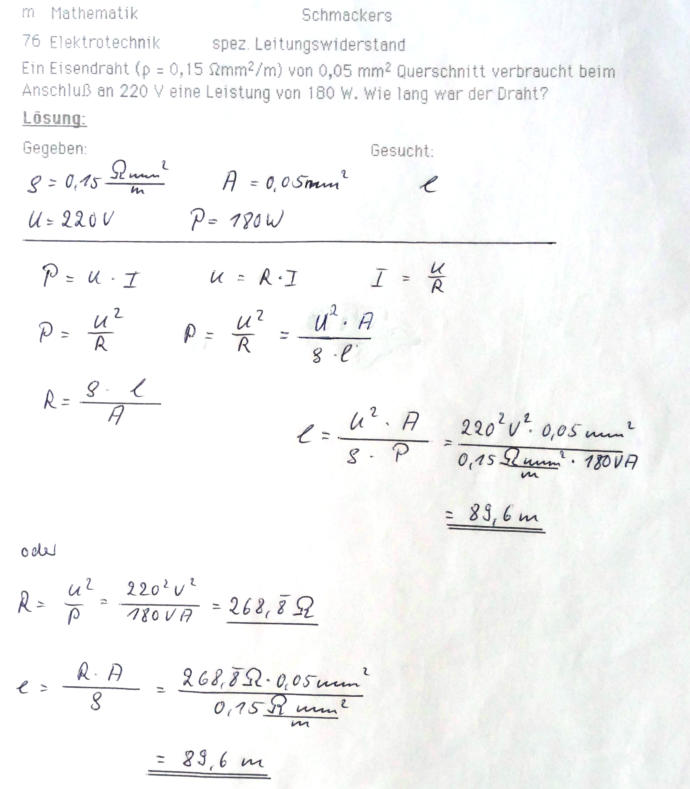 m Mathematik Schmackers
76 Elektrotechnik spez. Leitungswiderstand
Ein Eisendraht (ρ = 0,15 Ωmm²/m) von 0,05 mm² Querschnitt verbraucht beim
Anschluß an 220 V eine Leistung von 180 W. Wie lang war der Draht?
Lösung:
Gegeben: Gesucht:
ρ = 0,15 Ωmm²/m A = 0,05mm² l
U = 220V P = 180W
P = U · I U = R · I I = U/R
P = U²/R P = U²/R = U² · A / ρ · l
R = ρ · l / A
l = U² · A / ρ · P = 220²V² · 0,05mm² / 0,15 Ωmm²/m · 180VA
= 89,6 m
oder
R = U²/P = 220²V² / 180VA = 268,8̅ Ω
l = R · A / ρ = 268,8̅Ω · 0,05mm² / 0,15 Ω mm²/m
= 89,6 m